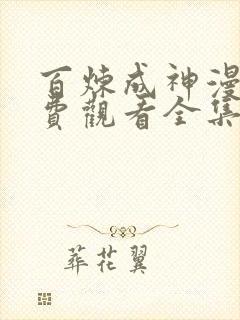 百炼成神漫
費觀看全集
葬花翼